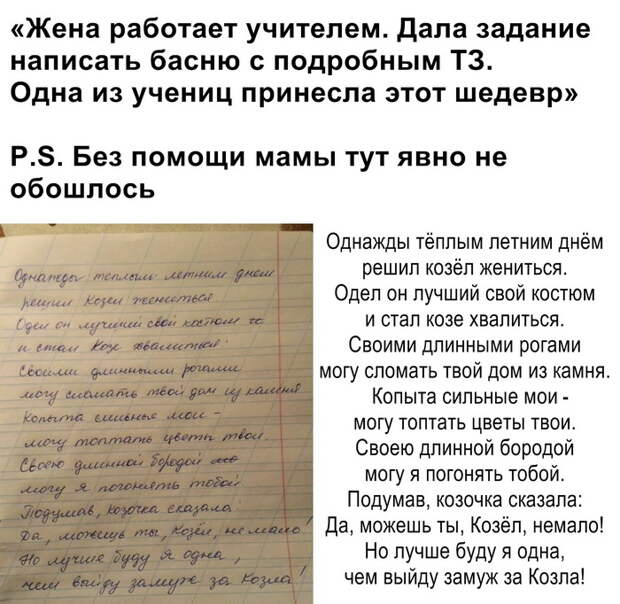 «Жена работает учителем. Дала задание
написать басню с подробным ТЗ.
Одна из учениц принесла этот шедевр»
P.S. Без помощи мамы тут явно не
обошлось
Однажды теплым летним днем
решил Козел жениться.
Одел он лучший свой костюм
и стал Козе хвалиться:
Своими длинными рогами
могу сломать твой дом из камня
Копыта сильные мои -
могу топтать цветы твои.
Своею длинной бородой
могу я погонять тобой
Подумав, Козочка сказала:
Да, можешь ты, Козёл, не мало!
Но лучше буду я одна,
чем выйду замуж за Козла!
Однажды тёплым летним днём
решил козёл жениться.
Одел он лучший свой костюм
и стал козе хвалиться.
Своими длинными рогами
могу сломать твой дом из камня.
Копыта сильные мои -
могу топтать цветы твои.
Своею длинной бородой
могу я погонять тобой.
Подумав, козочка сказала:
Да, можешь ты, Козёл, немало!
Но лучше буду я одна,
чем выйду замуж за Козла!